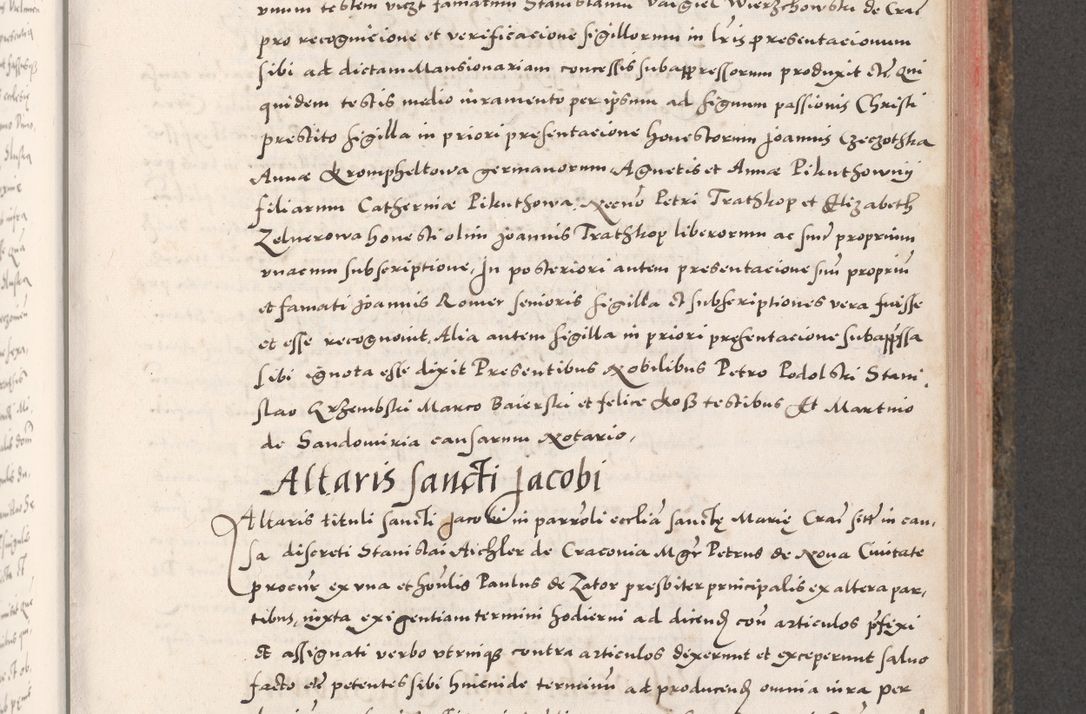 vnum testem vizt famatum Stanislaum Wierzchowski de Crac
pro recognicione et verificacione sigillorum in lris presentacionum
sibi ad dictam Mansionariam concessis subappressorum produxit etc Qui
quidem testis medio iuramento per ipsum ad signum passionis Christi
prestito sigilla in priori presentacione honestorum Joannis Czeczothka
Annæ Krompheltowa germanorum, Agnetis et Annæ Pikuthowny
filiarum Catherinæ Pikuthowa, Petri Trathkop et Elizabeth
Zelnerowa honesti olim Joannis Trathkop liberorum ac suu proprium
vnacum subscriptione, In posteriori autem presentacione suu propriu
et famati Joannis Romer senioris sigilla et subscriptiones vera fuisse
et esse recognouit, Alia autem sigilla in priori presentacione subappssa
sibi ignota esse dixit Presentibus Nobilibus Petro Podolski Stani,
slao Krzembski Marco Baierski et felice Koss testibus Et Martino
de Sandomiria causarum Notario,
Altaris sancti Jacobi
Altaris tituli sancti Jacobi in parroli ecclia sanctę Marię Crac sitt in cau,
sa discreti Stanislai Aichler de Cracouia Mgr Petrus de Noua Ciuitate
procur ex vna et honlis Paulus de Zator presbiter principalis ex altera par,
tibus, iuxta exigentiam termini hodierni ad dicend con articulos pfixi
et assignati verbo vtrinque contra articulos dixerunt et exceperunt saluo
facto etc petentes sibi hincinde terminu ad producend omnia iura per